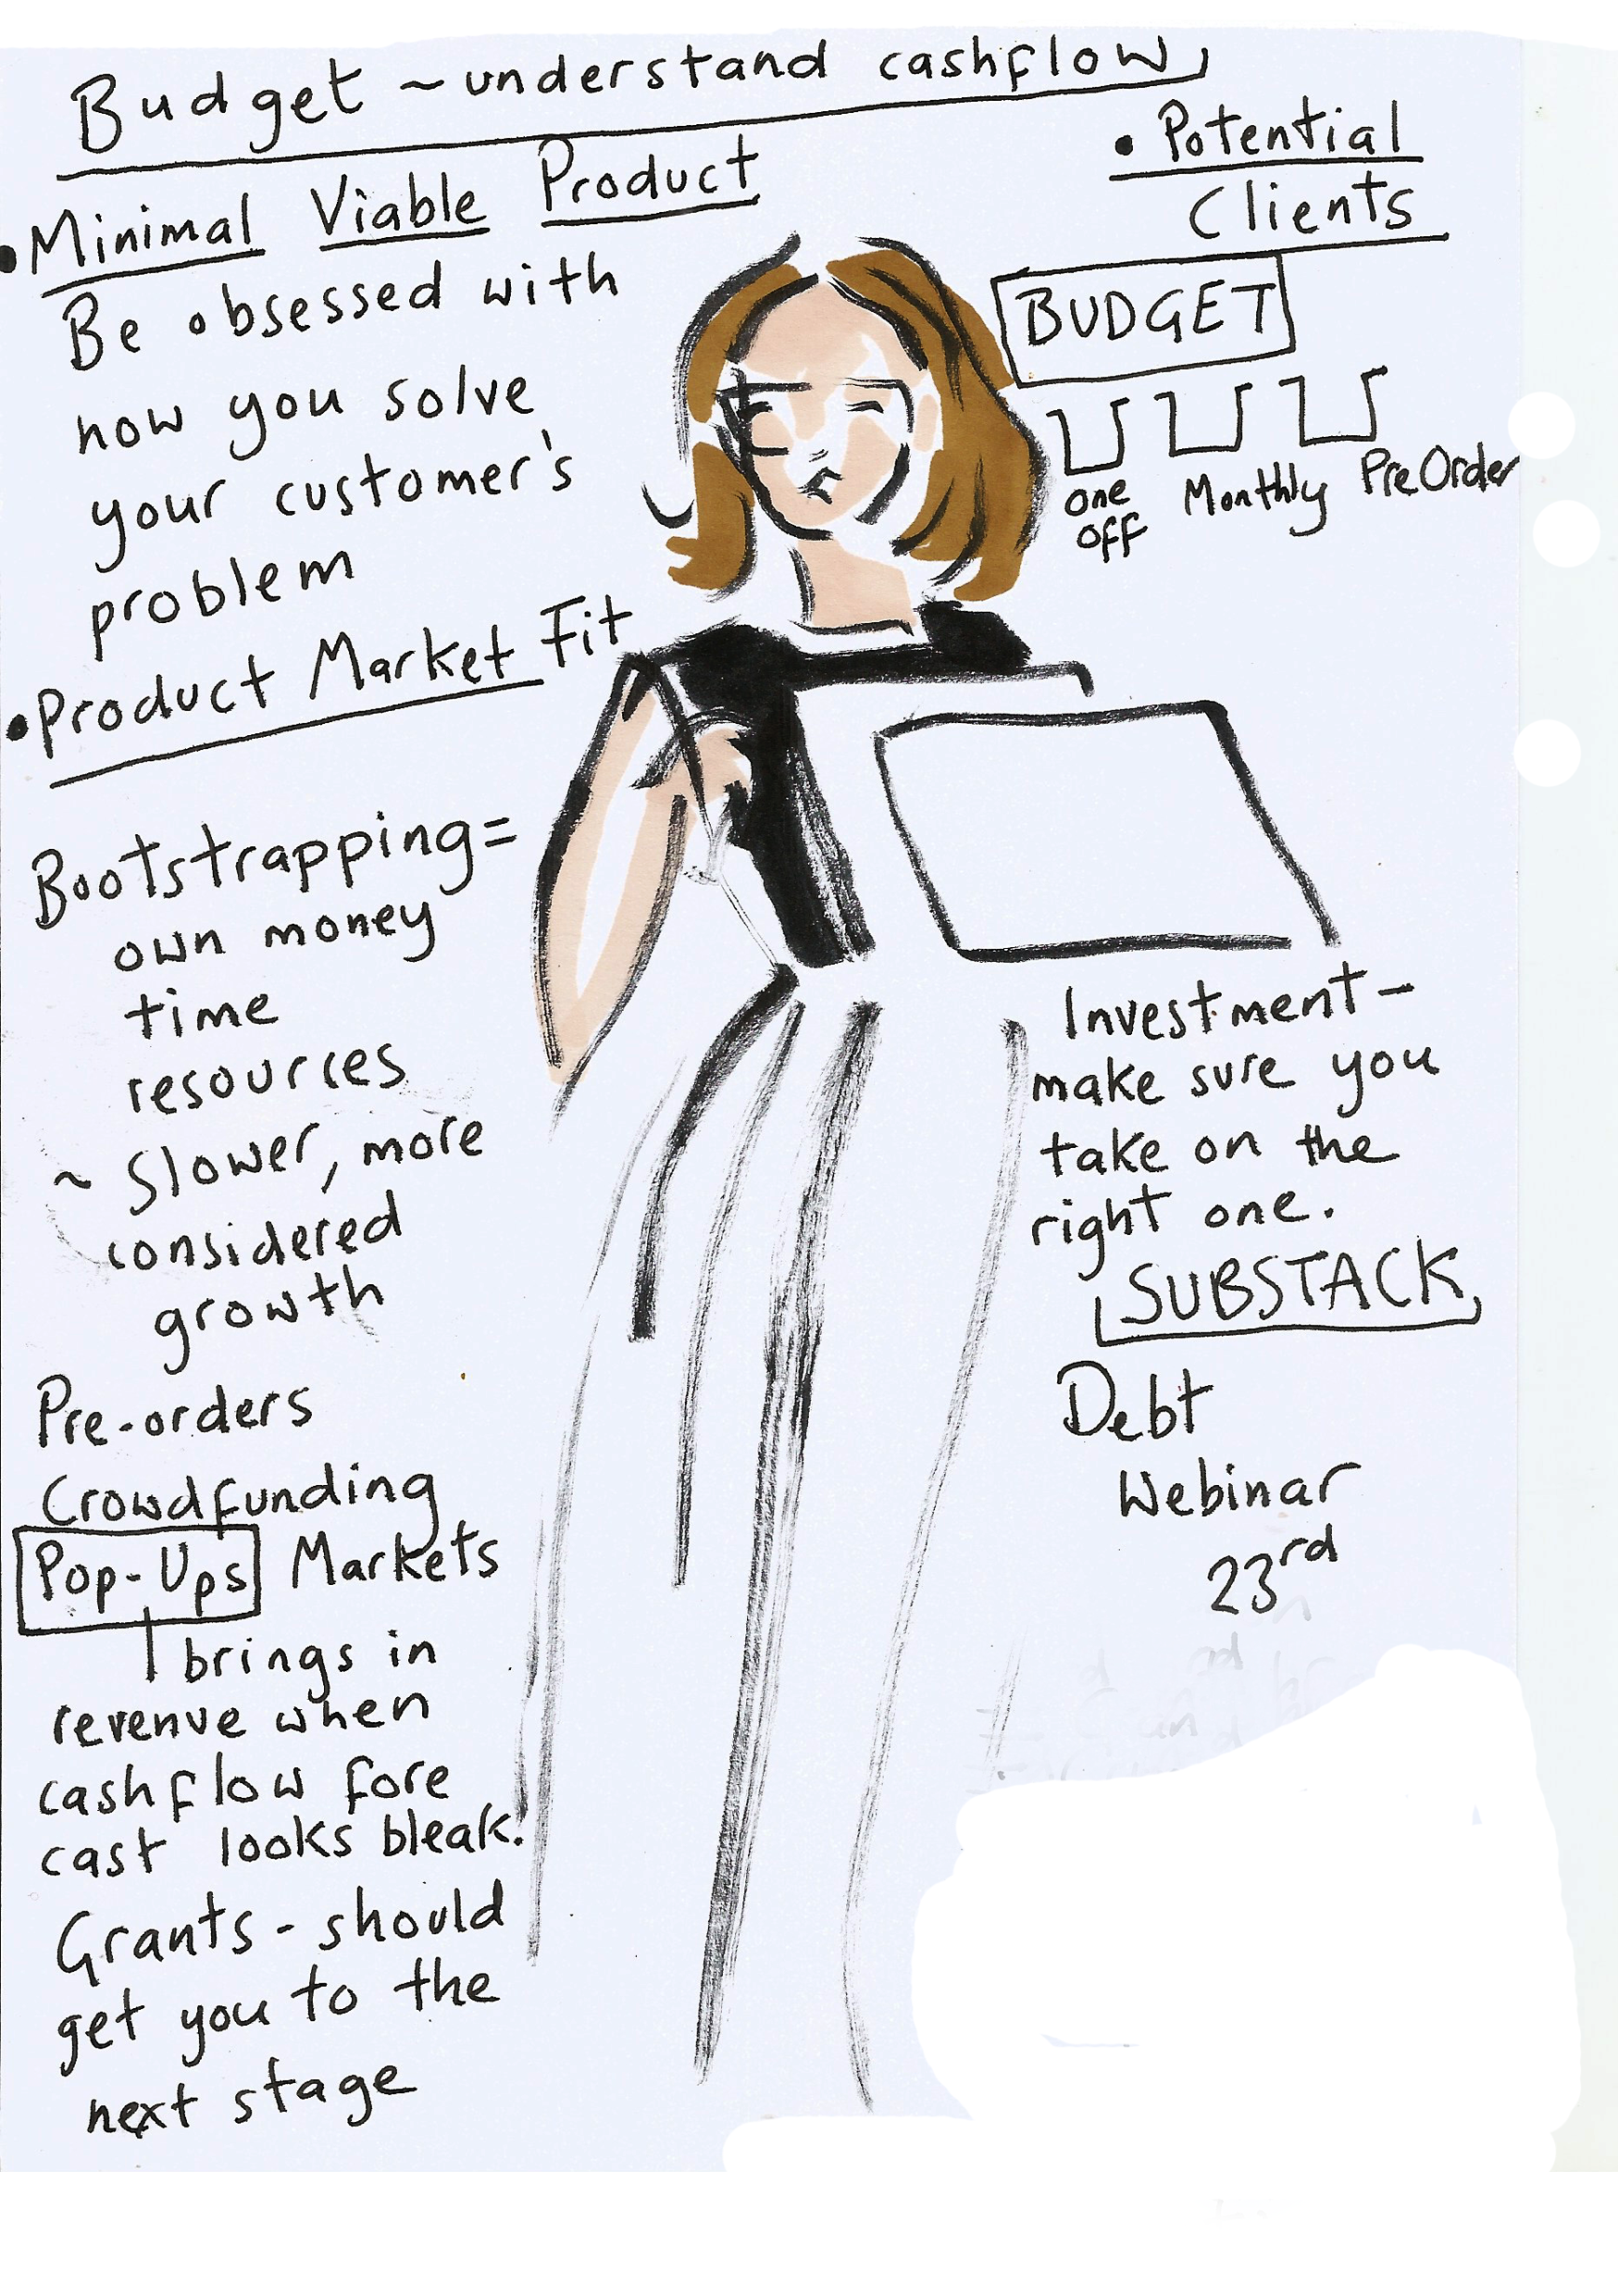 Budget ~ understand cashflow
• Minimal Viable Product
Be obsessed with
how you solve
your customer's
problem
• Product Market Fit
Bootstrapping =
own money
time
resources
~ Slower, more
considered
growth
Pre-orders
Crowdfunding
Pop-Ups Markets
brings in
revenue when
cashflow fore
cast looks bleak.
Grants - should
get you to the
next stage
• Potential
Clients
BUDGET
one off Monthly PreOrder
Investment -
make sure you
take on the
right one.
SUBSTACK
Debt
Webinar
23rd